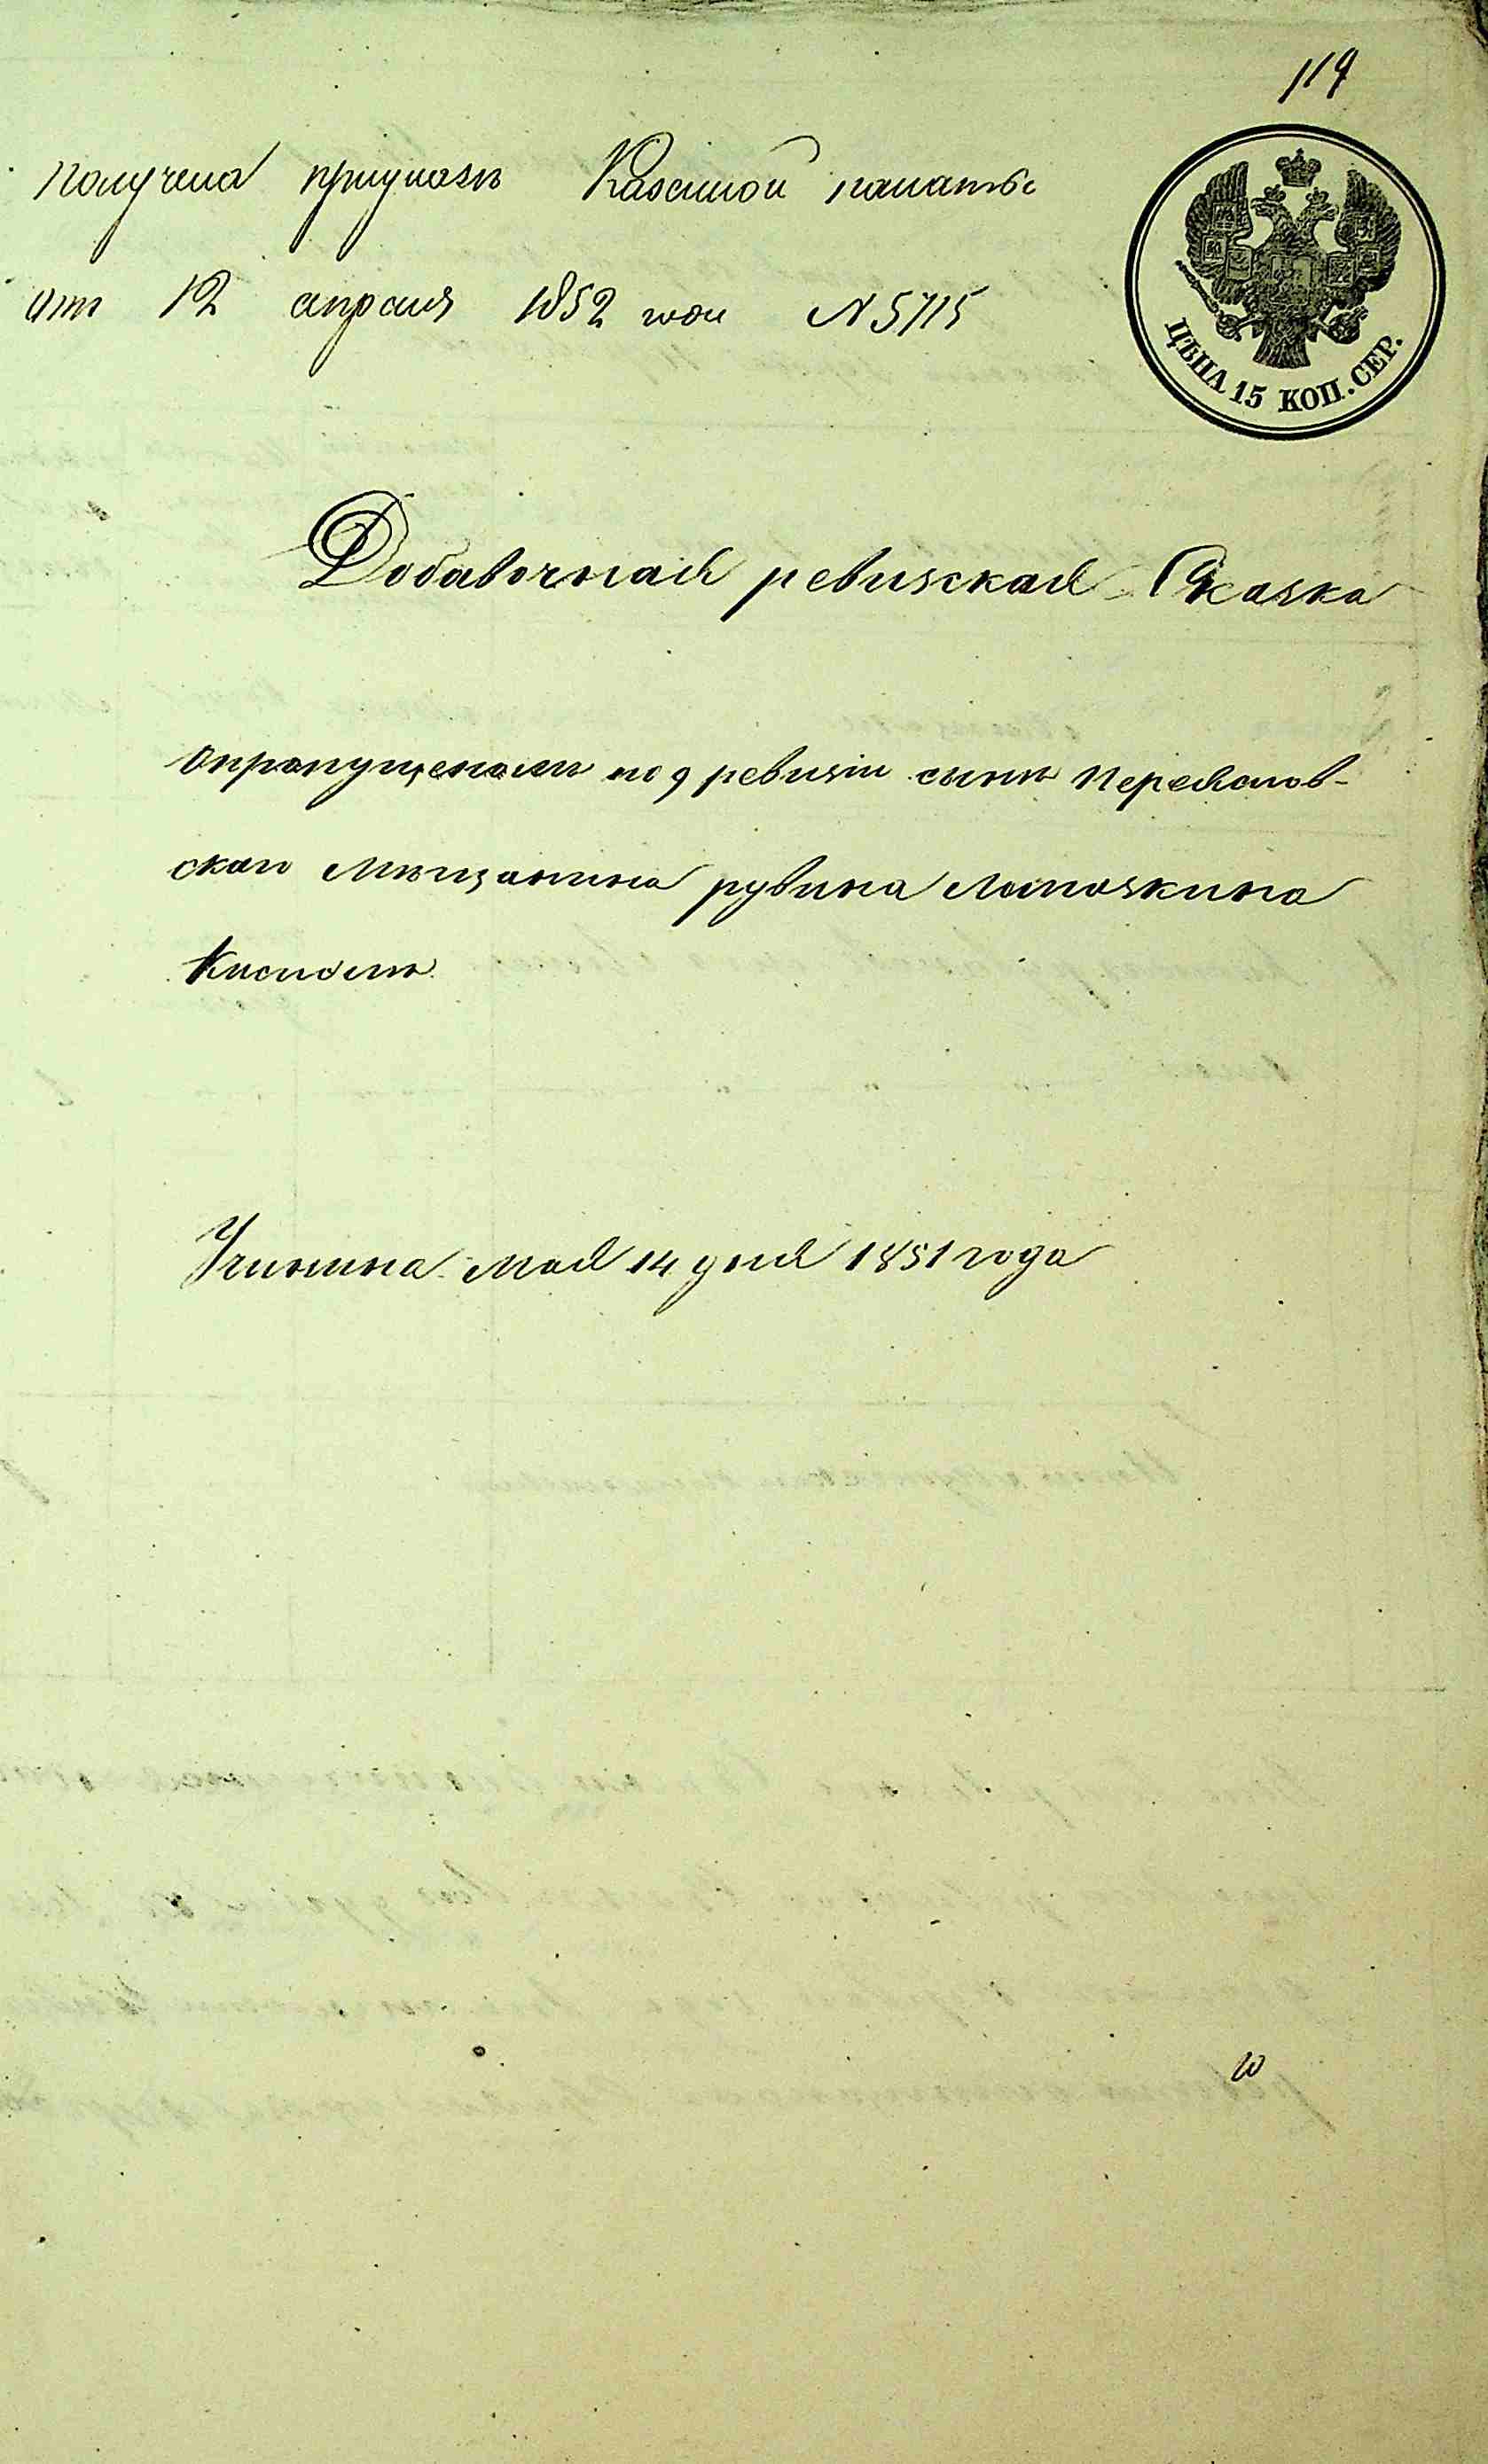 119
Получена приуказъ Казенной палаты
отъ 12 апреля 1852 года N 5715
ЦѢНА 15 КОП. СЕР.
Добавочная ревизская Сказка
опропущеномъ по 9 ревизіи сынѣ Переяслов-
скаго Мѣщанина рувина
Учинина мая 14 дня 1851 года